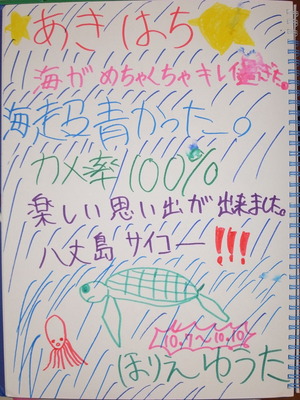 あきはち
海がめちゃくちゃキレイだった。
海超青かったー。
カメ率100%
楽しい思い出が出来ました。
八丈島サイコー!!!
10.7〜10.10
ほりえゆうた